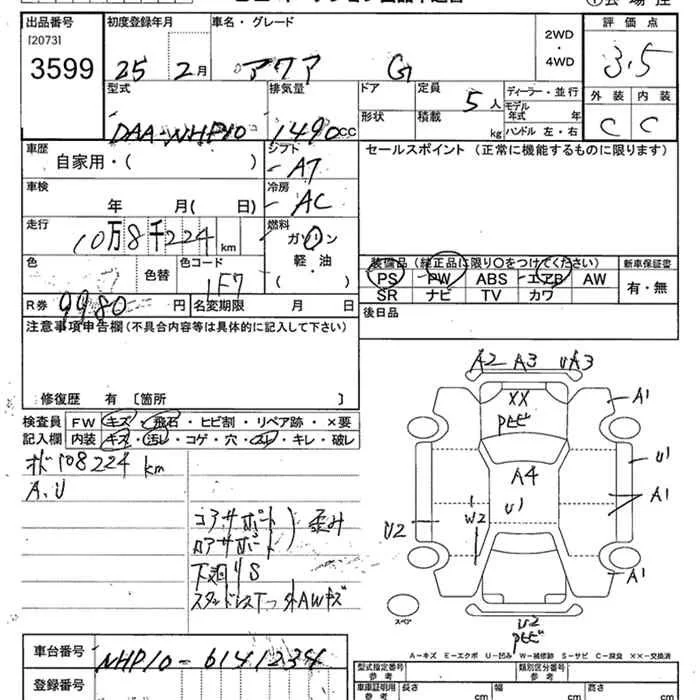 出品番号 初度登録年月 車名・グレード 評価点
[2073]
3599 25 2月 アクア G 2WD・4WD 3.5
型式 排気量 ドア 定員 5人 ディーラー・並行 外装 内装
モデル年式 年
DAA-NHP10 1490cc 形状 積載 kg ハンドル 左・右 C C
車歴 シフト セールスポイント (正常に機能するものに限ります)
自家用・( ) AT
車検 冷房
年 月( 日) AC
走行 燃料
10万8千224km ガソリン
色 色替 色コード 軽・油 装備品 (純正品に限り○をつけてください) 新車保証書
1F7 ( ) PS PW ABS エアB AW 有・無
R券 9980円 名変期限 月 日 SR ナビ TV カワ
注意事項申告欄 (不具合内容等は具体的に記入して下さい) 後日品
修復歴 有 〔箇所 〕
検査員 FW キズ・飛石・ヒビ割・リペア跡・×要
記入欄 内装 キズ・汚レ・コゲ・穴・スレ・キレ・破レ
オド108224km
A.U
コアサポート
ロアサポート 歪み
下廻りS
スタッドレスT 外AWキズ
A2 A3 UA3
XX
A1
PヒビA4
U1
U1
A1
W2
U2
A1
U2
Pヒビ
スペア
A-キズ E-エクボ U-凹み W-補修跡 S-サビ C-腐食 XX-交換済
車台番号 NHP10-6141234 型式指定番号 参考 類別区分番号 参考
登録番号 車庫証明用 参考 長さ cm 幅 cm 高さ cm